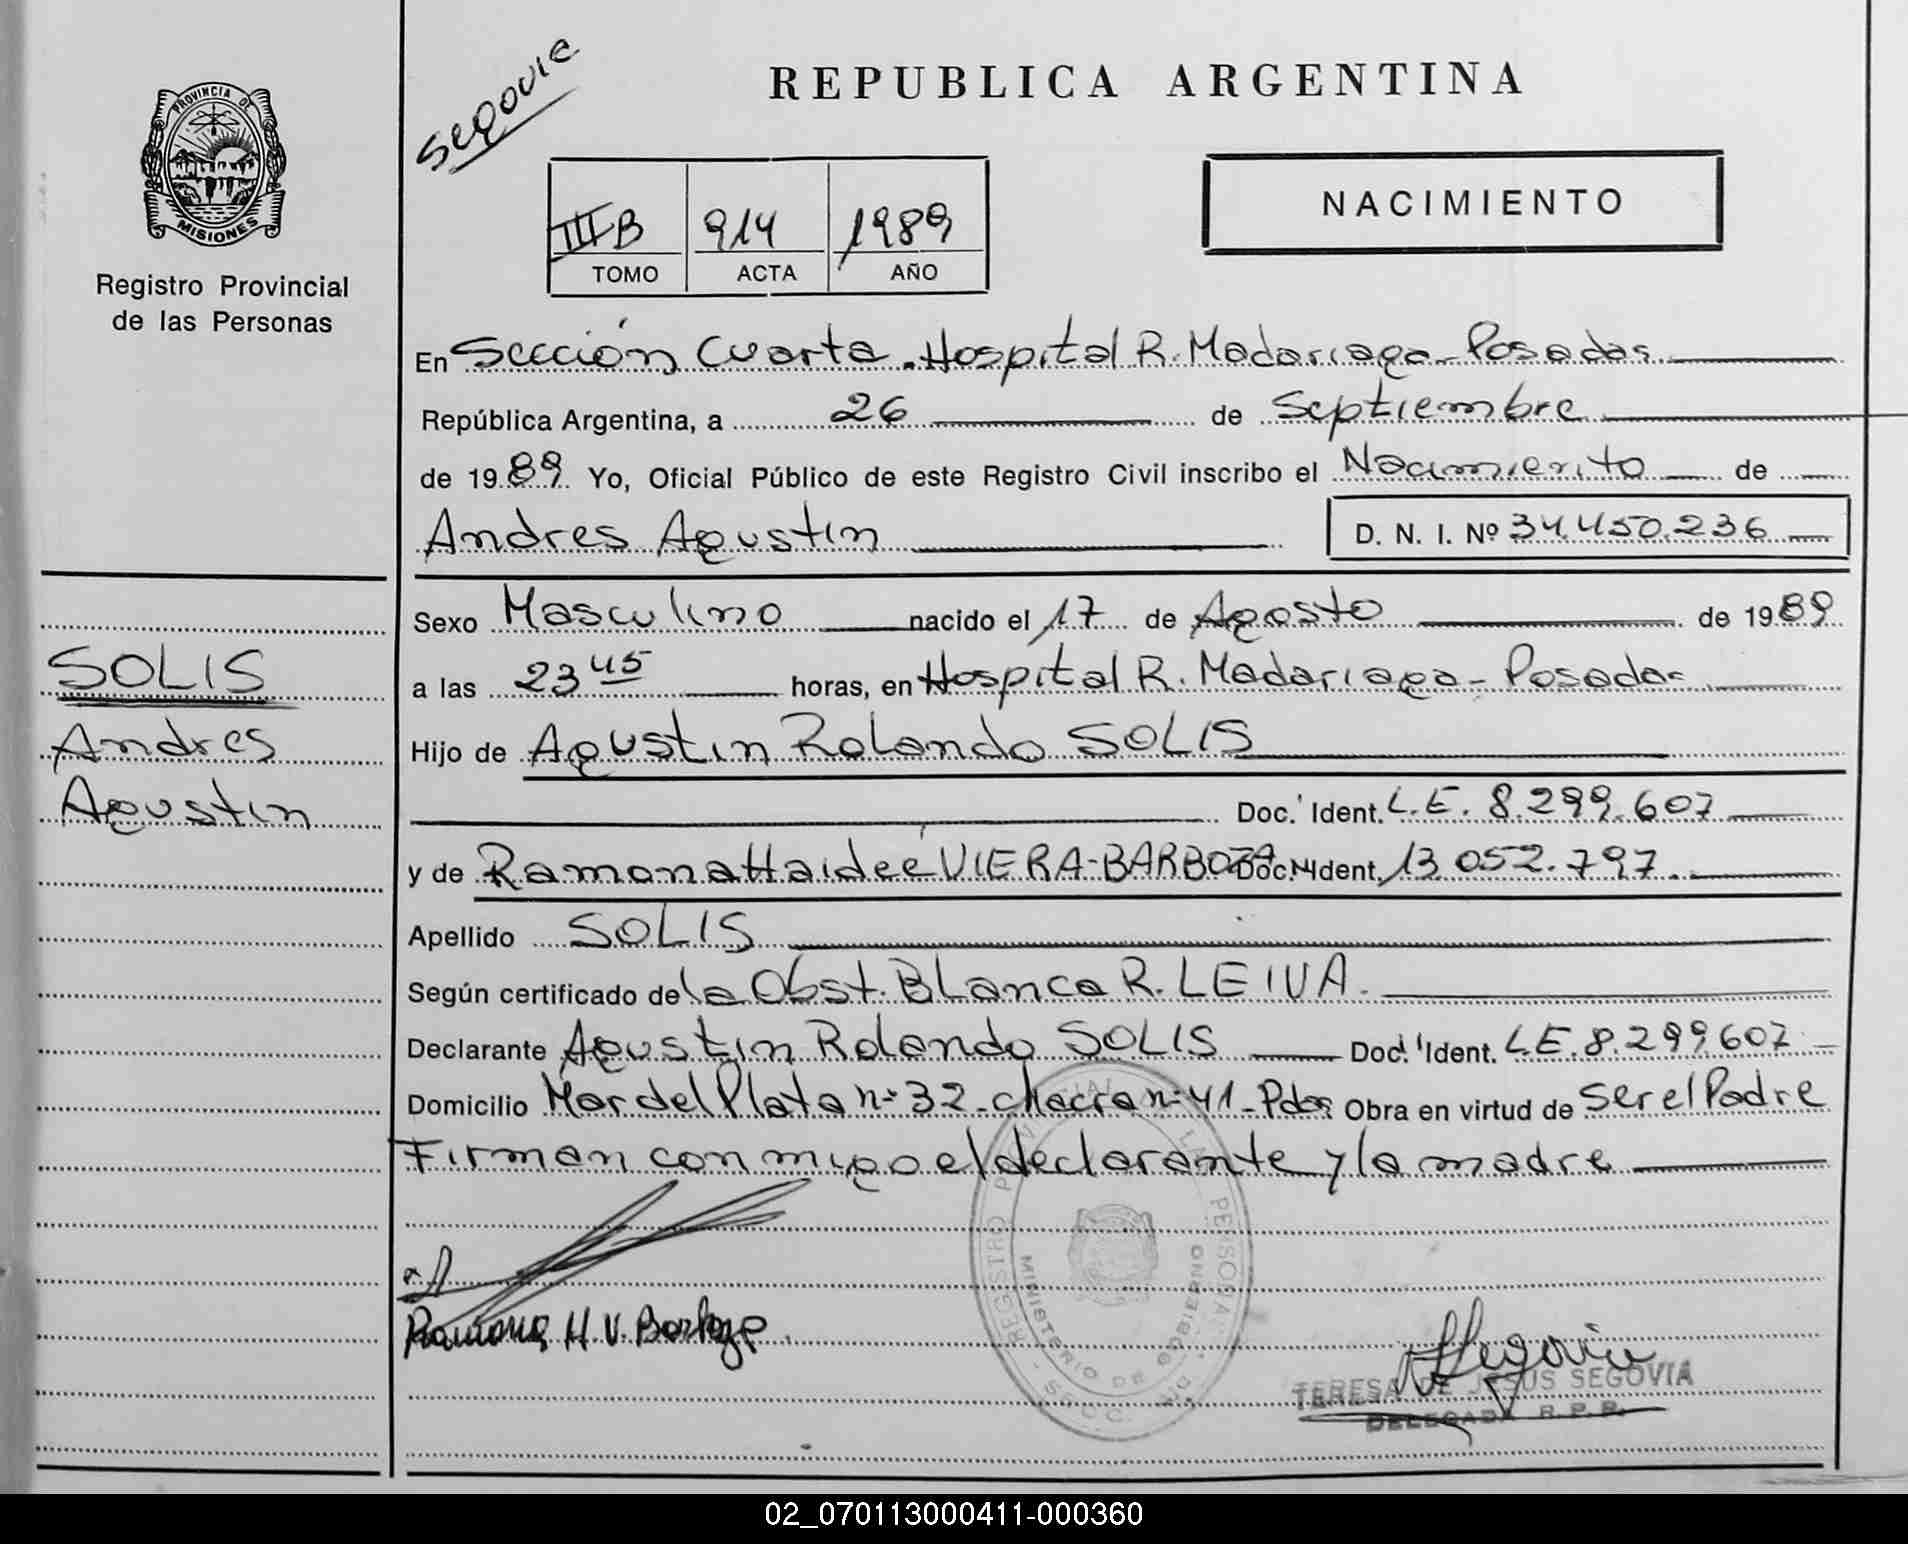 PROVINCIA DE
MISIONES
Registro Provincial
de las Personas
SOLIS
Andres
Agustin
Segovia
REPUBLICA ARGENTINA
III B 914 1989
TOMO ACTA AÑO
NACIMIENTO
En Sección Cuarta. Hospital R. Madariaga - Posadas
República Argentina, a 26 de Septiembre
de 1989 Yo, Oficial Público de este Registro Civil inscribo el Nacimiento de
Andres Agustin D. N. I. Nº 34.450.236
Sexo Masculino nacido el 17 de Agosto de 1989
a las 23 45 horas, en Hospital R. Madariaga - Posadas
Hijo de Agustin Rolando SOLIS
Doc. Ident. L.E. 8.299.607
y de Ramona Haideé VIERA-BARBOZA Doc. Ident. 13.052.797
Apellido SOLIS
Según certificado de la Obst. Blanca R. LEIVA.
Declarante Agustin Rolando SOLIS Doc. Ident. L.E. 8.299.607
Domicilio Mar del Plata nº 32 - chacra nº 41 - Pdas Obra en virtud de ser el Padre
Firman con migo el declarante y la madre
Ramona H. V. Barboza
REGISTRO PROVINCIAL DE LAS PERSONAS
MINISTERIO DE GOBIERNO
Segovia
TERESA DE JESUS SEGOVIA
DELEGADA R.P.P.
02_070113000411-000360